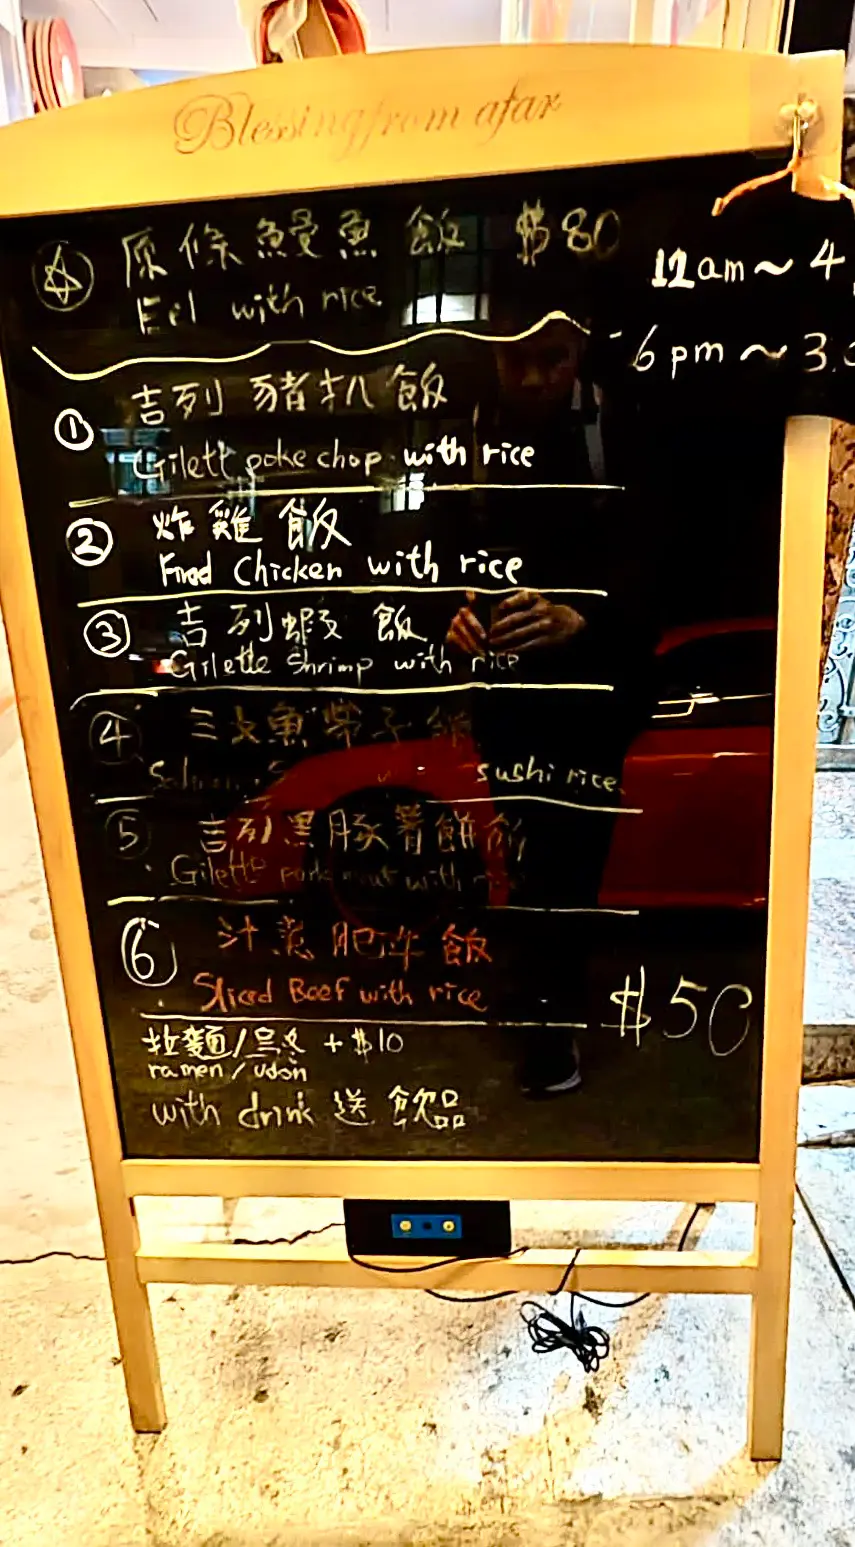 Blessing from afar
原條鰻魚飯 $80
Eel with rice
12am~4
6pm~3.
① 吉列豬扒飯
Gilett poke chop with rice
② 炸雞飯
Fried Chicken with rice
③ 吉列蝦飯
Gilette Shrimp with rice
④ 三文魚 帶子
sushi rice
⑤ 吉列黑豚薯餅飯
Gilette pork with
⑥ 汁煮肥牛飯
Sliced Beef with rice
$50
拉麵/烏冬 +$10
ramen/udon
with drink 送飲品